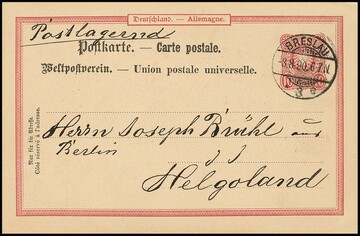 Deutschland. — Allemagne.
Postlagernd
Postkarte. — Carte postale.
Weltpostverein. — Union postale universelle.
BRESLAU
-8.8.90.6-7N.
3 e
Nur für die Adresse.
Côté réservé à l'adresse.
Herrn Joseph Brühl aus
Berlin
Helgoland